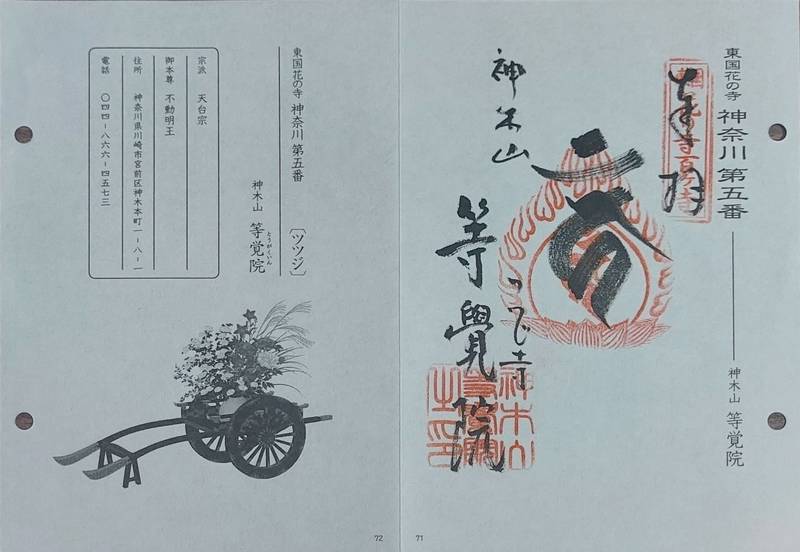 東国花の寺 神奈川 第五番
神木山 等覚院
奉拝
つつじ寺
神木山
等覺院
71
東国花の寺 神奈川 第五番
〔ツツジ〕
神木山 等覚院
とうがくいん
宗派 天台宗
御本尊 不動明王
住所 神奈川県川崎市宮前区神木本町一-八-一
電話 〇四四-八六六-四五七三
72